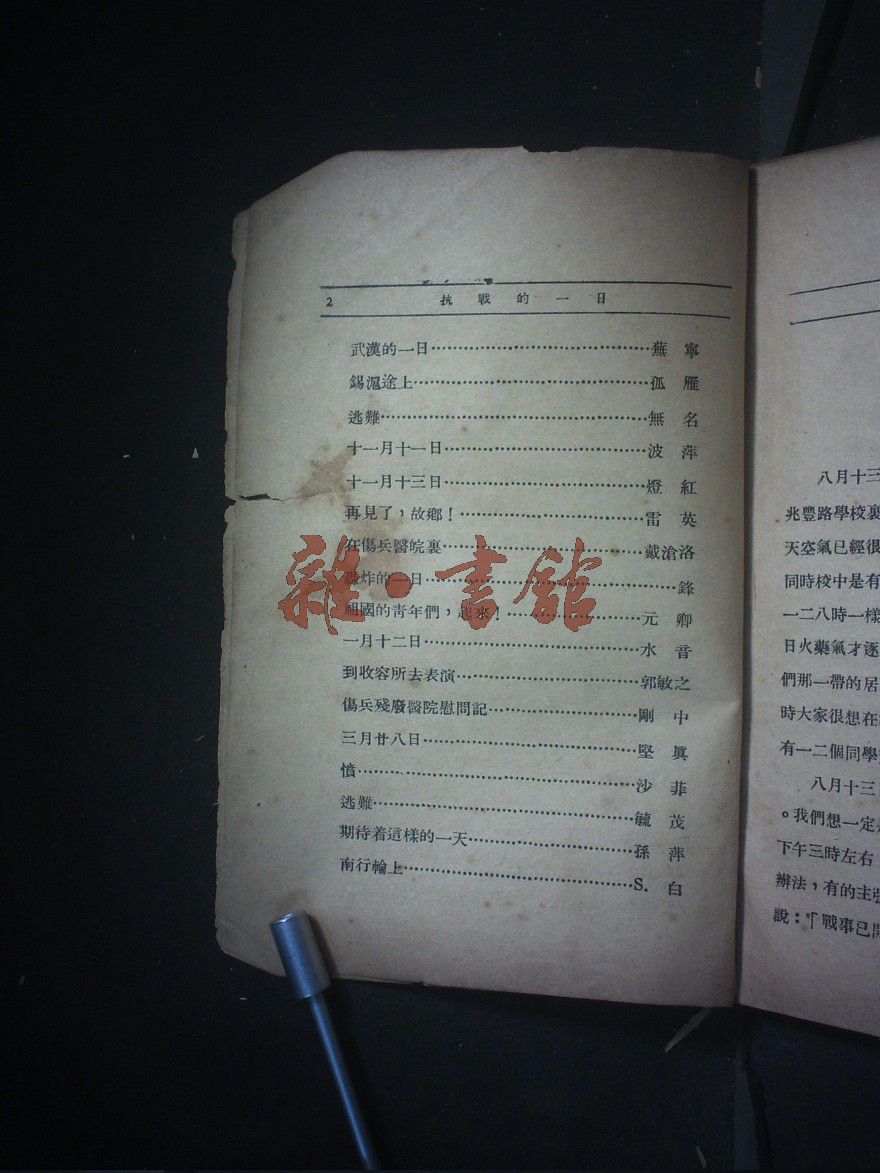 2 抗戰的一日
武漢的一日……………………………蕪寧
錫滬途上……………………………孤雁
逃難……………………………無名
十一月十一日……………………………波萍
十一月十三日……………………………燈紅
再見了，故鄉！……………………………雷英
在傷兵醫皖裏……………………………戴滄洛
轟炸的一日……………………………鋒
祖國的靑年們，起來！……………………………元卿
一月十二日……………………………水音
到收容所去表演……………………………郭敏之
傷兵殘廢醫院慰問記……………………………剛中
三月廿八日……………………………堅眞
憤……………………………沙菲
逃難……………………………毓茂
期待着這樣的一天……………………………孫萍
南行輪上……………………………S．白
雜·書館
八月十三
兆豐路學校裏
天空氣已經很
同時校中是有
一二八時一樣
日火藥氣才逐
們那一帶的居
時大家很想在
有一二個同學
八月十三
。我們想一定
下午三時左右
辦法，有的主張
說：「戰事已開